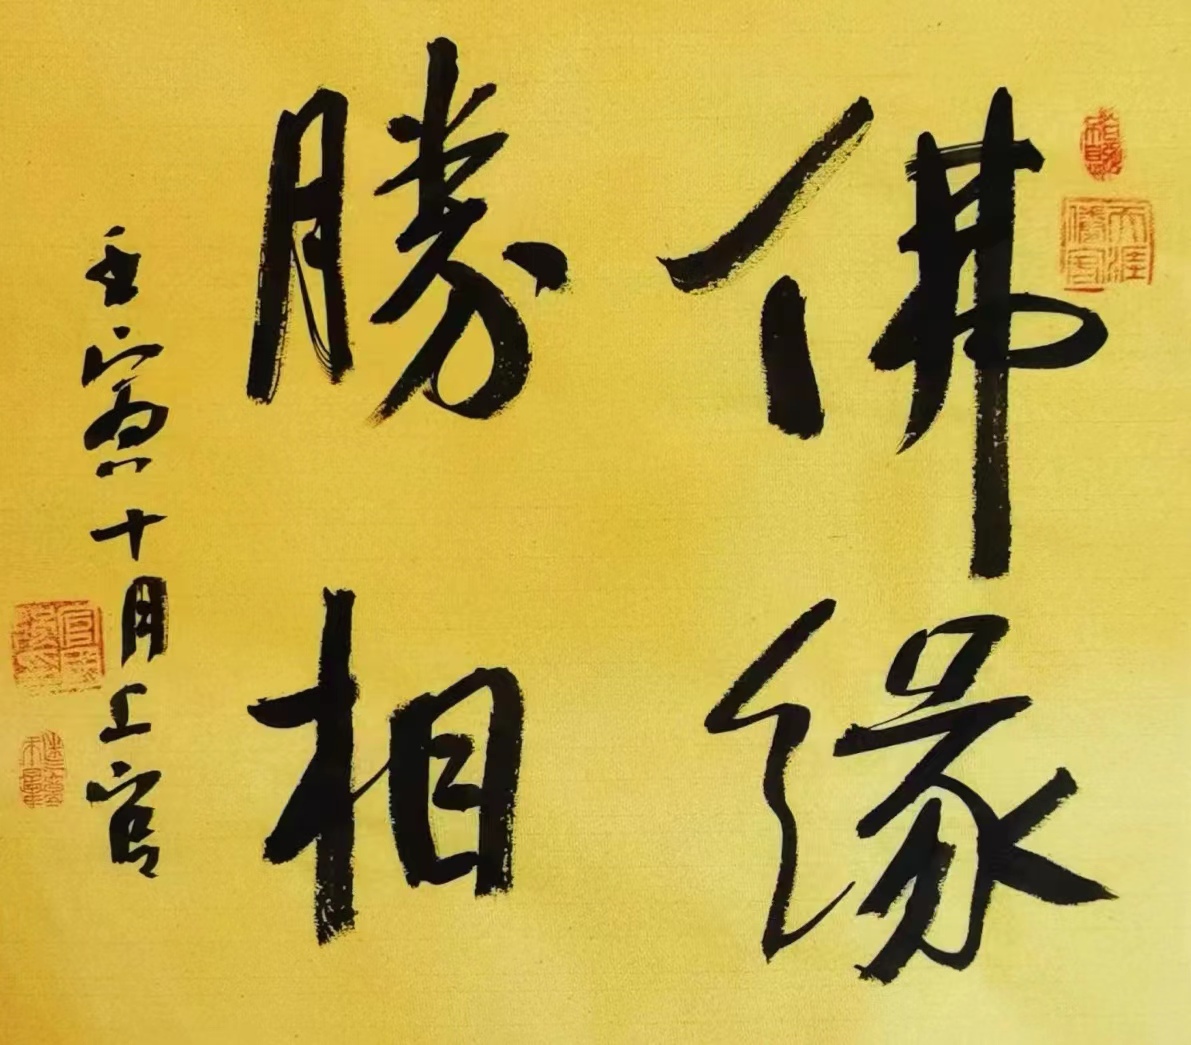 佛緣
勝相
壬寅十月上官